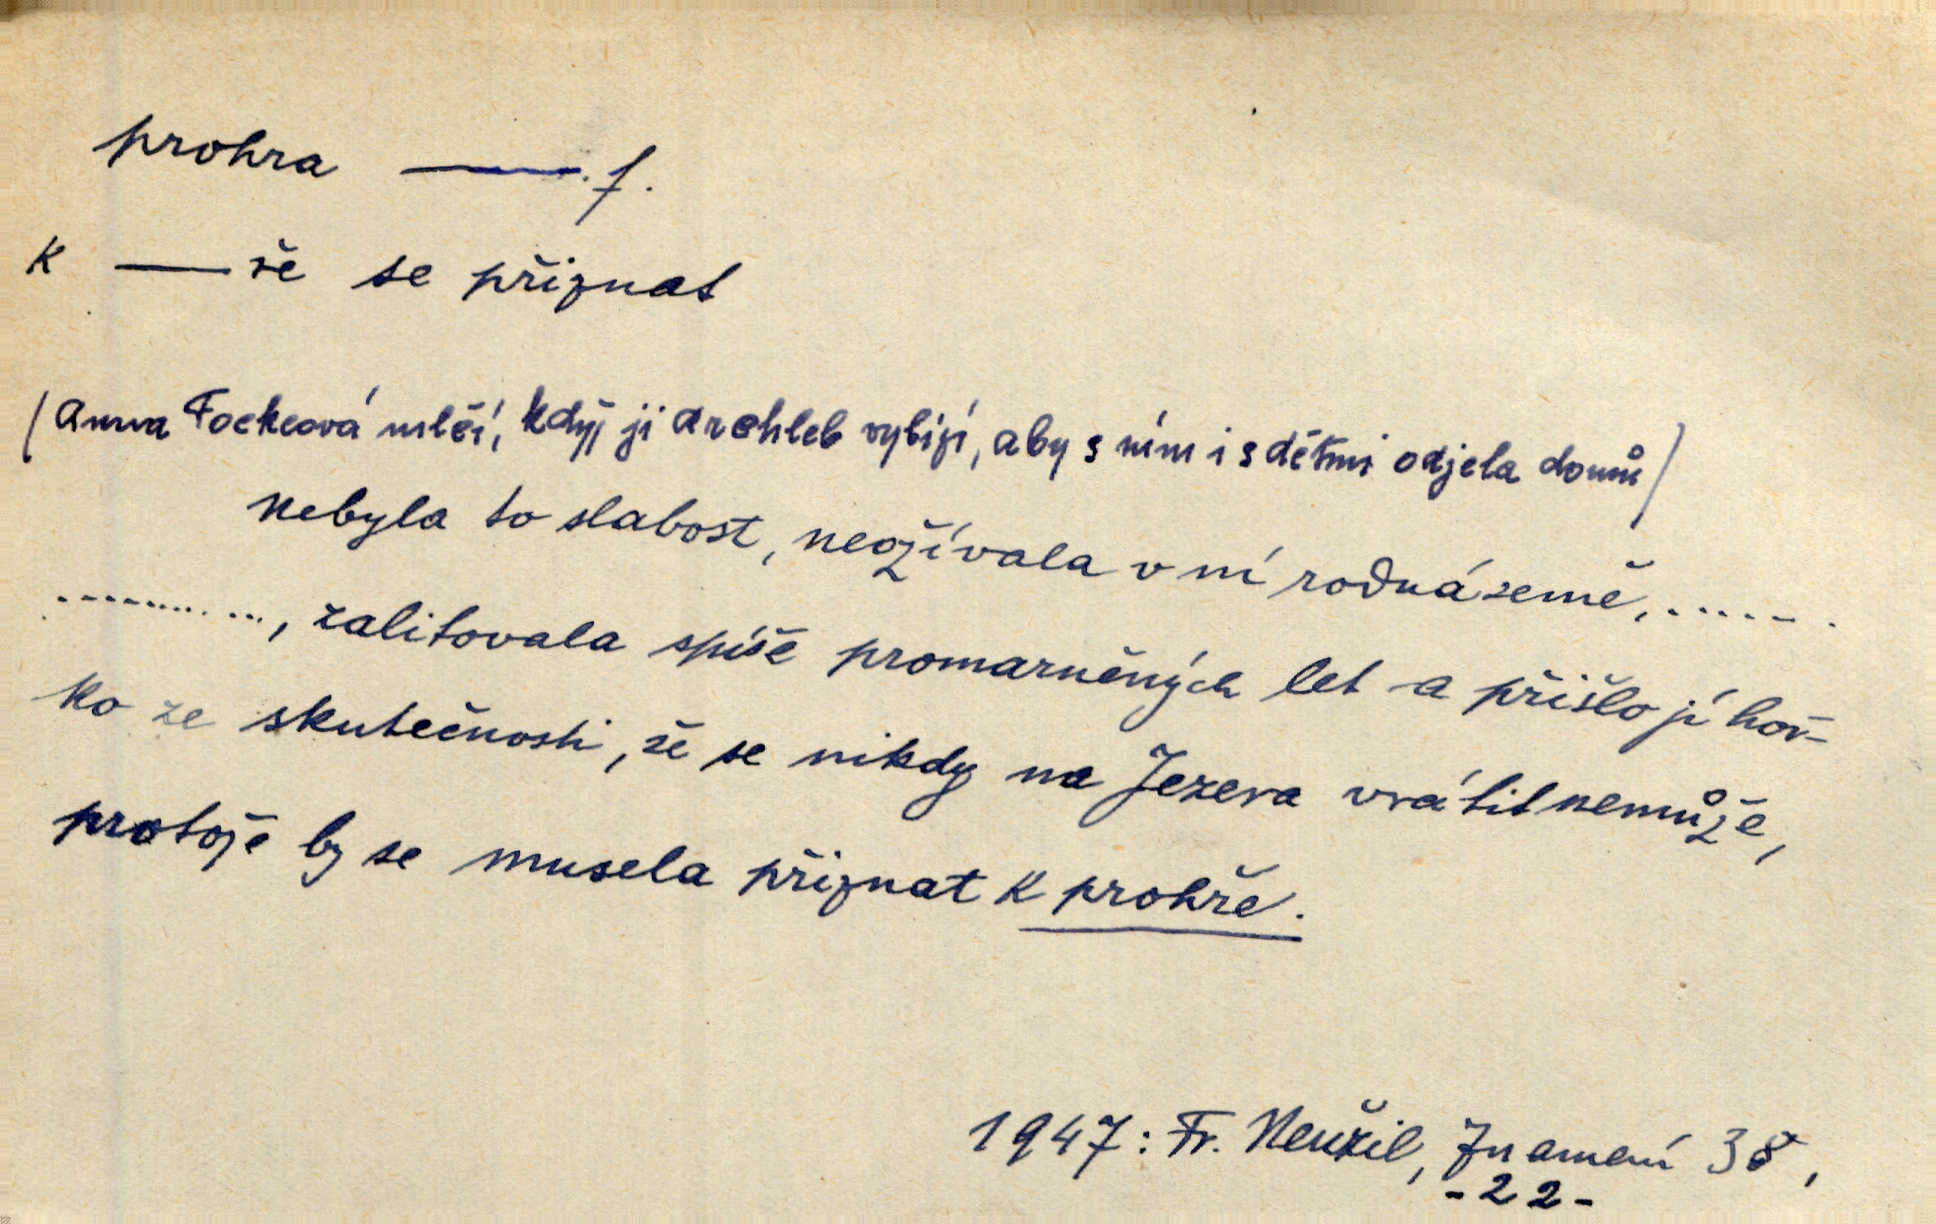 prohra ——. f.
K ——ře se přiznat
(Anna Fockeová mlčí, když ji Archleb vybízí, aby s ním i s dětmi odjela domů)
Nebyla to slabost, neožívala v ní rodná země, ......
..........., zalitovala spíše promarněných let a přišlo jí hoř-
ko ze skutečnosti, že se nikdy na Jezera vrátit nemůže,
protože by se musela přiznat k prohře.
1947: Fr. Neužil, Znamení 38,
-22-